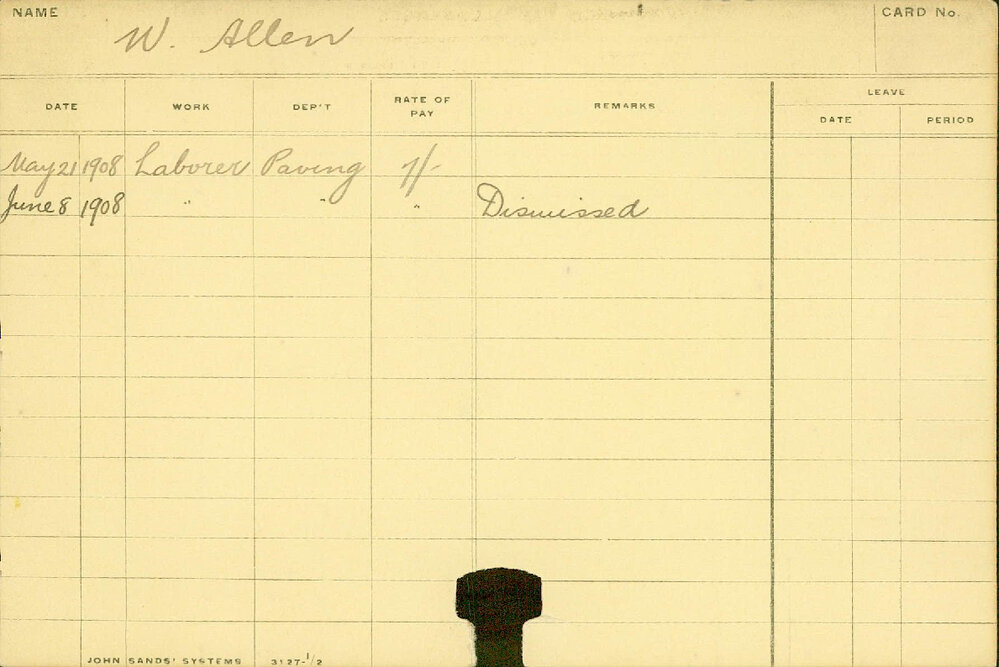 NAME W. Allen CARD No.
DATE WORK DEP'T RATE OF PAY REMARKS LEAVE
DATE PERIOD
May 21 1908 Laborer Paving 7/-
June 8 1908 " " " Dismissed
JOHN SANDS' SYSTEMS 3127-1/2